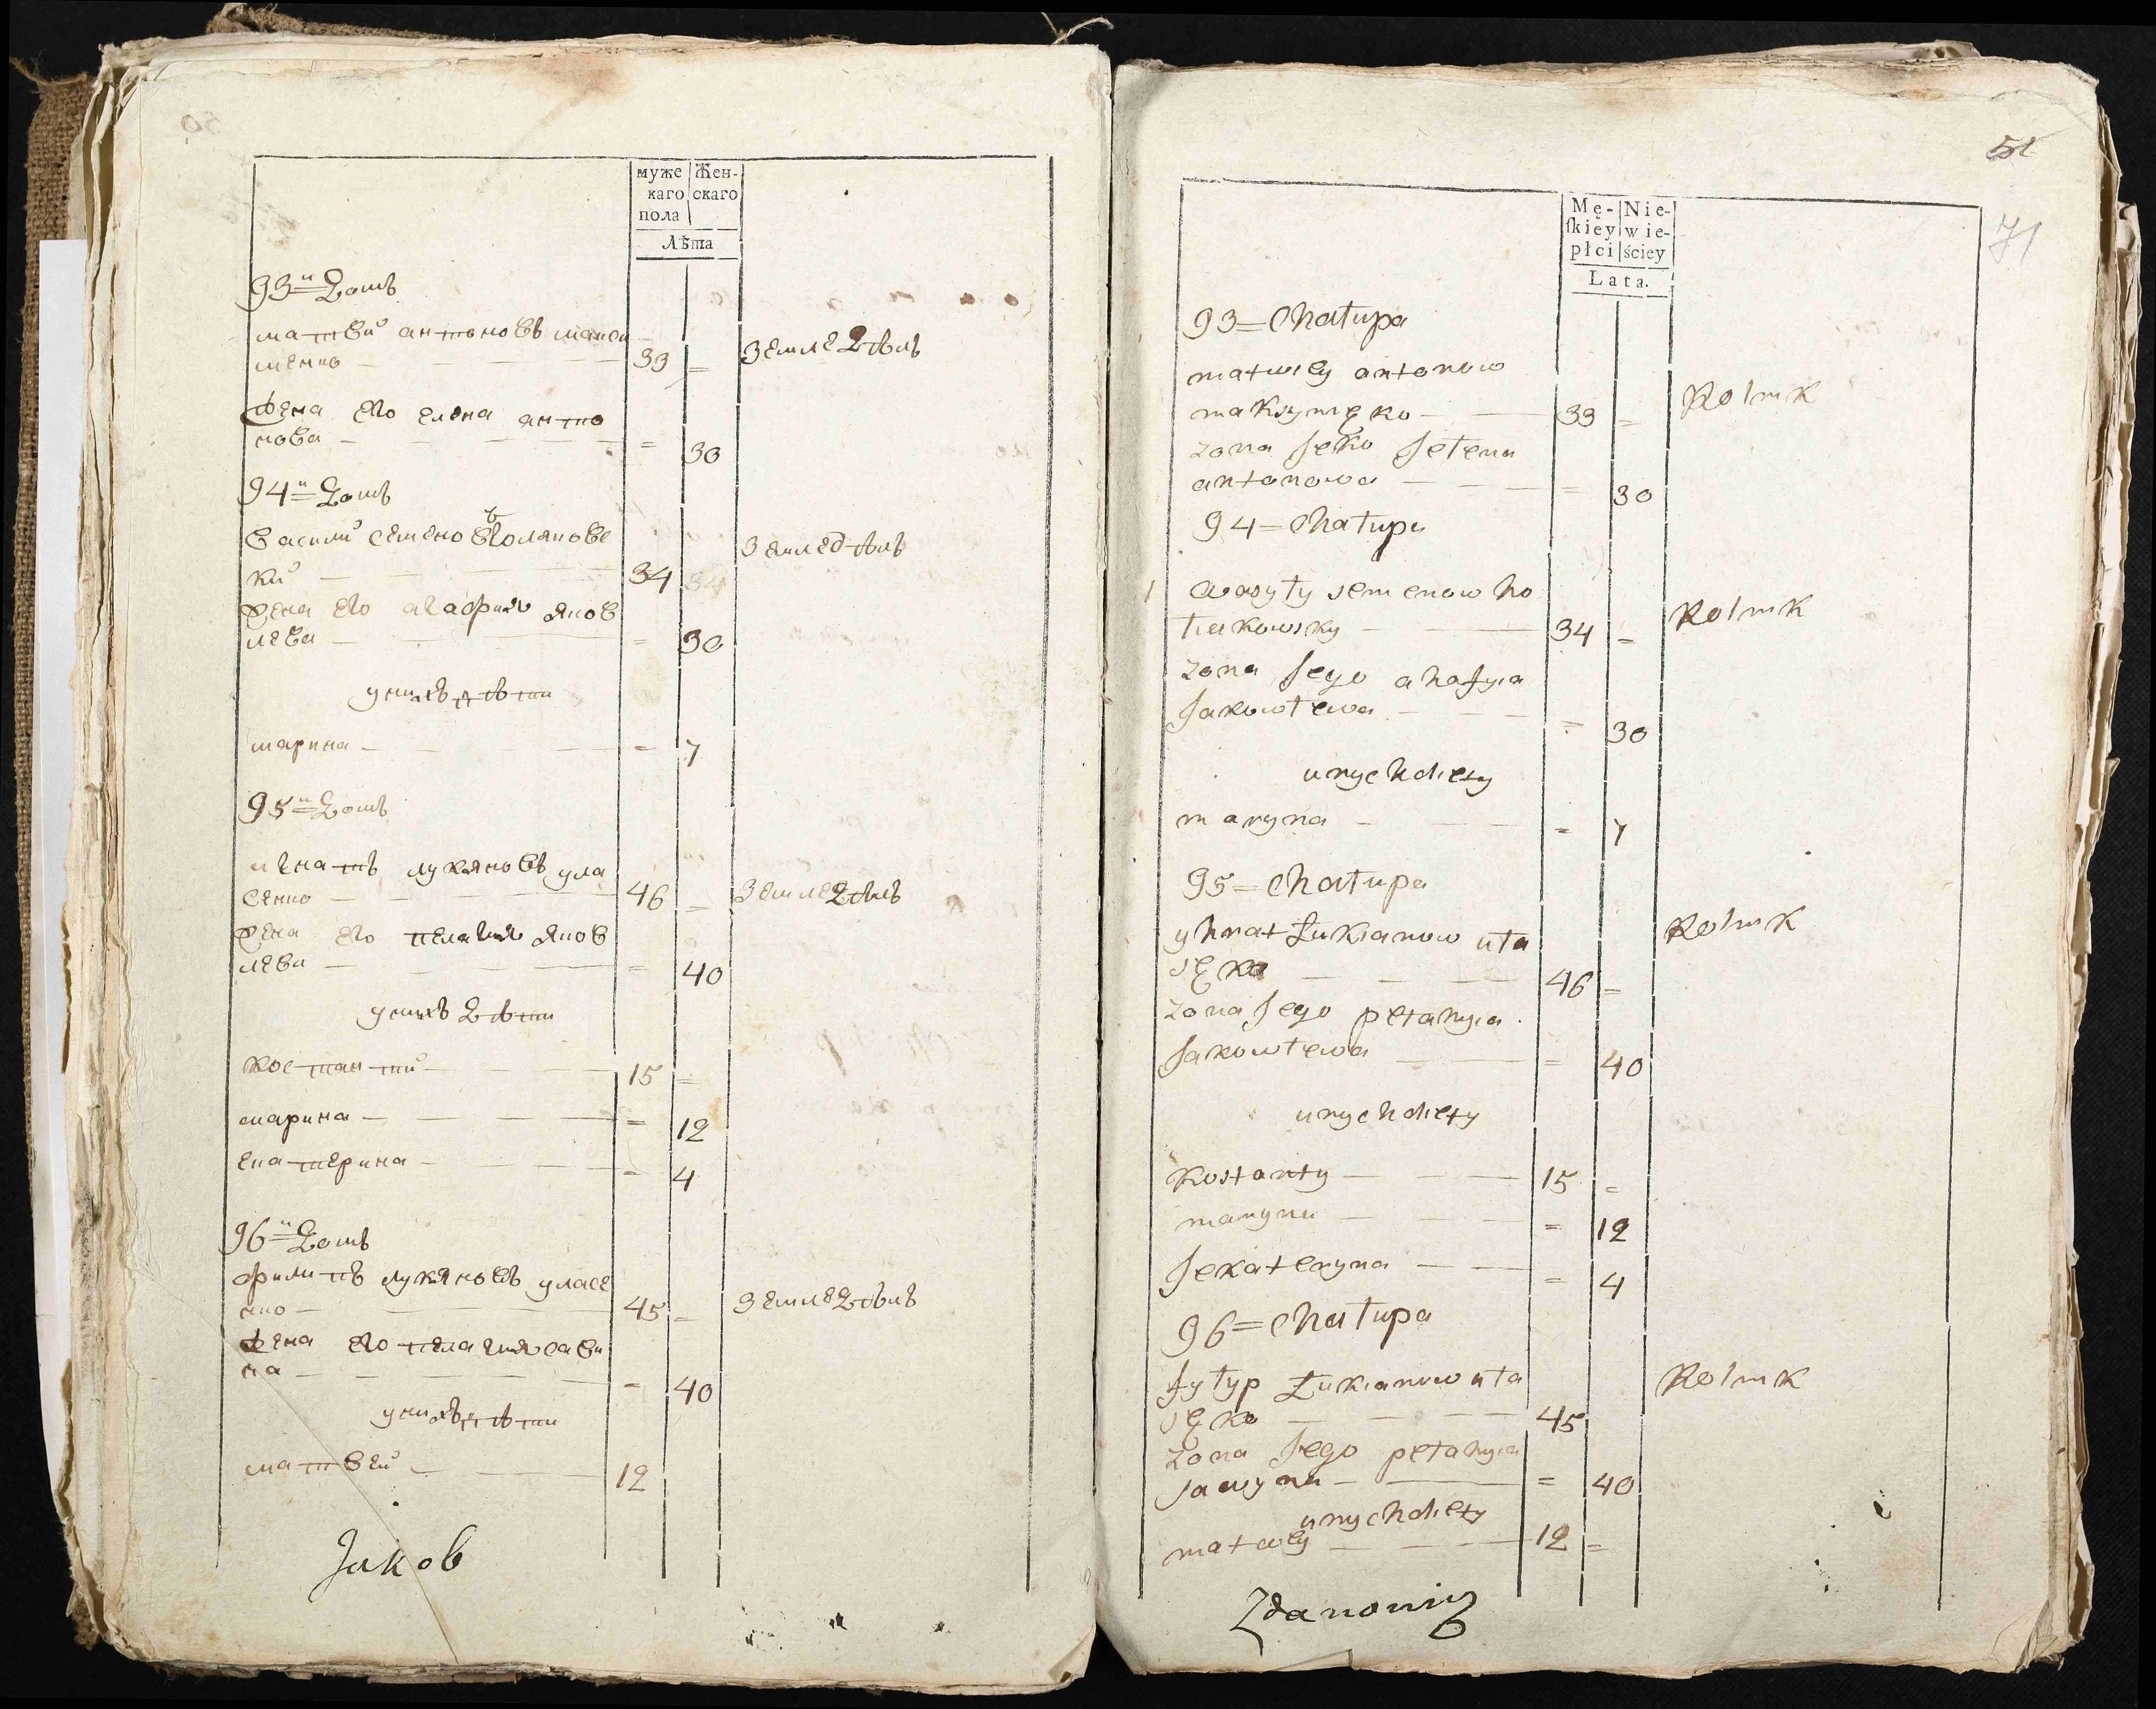 муже
каго
пола
Жен-
скаго
Лѣта
93й Домъ
матвій антоновъ макси
менко 33 =
земледѣлъ
жена его елена анто
нова = 30
94й Домъ
василій семеновъ голяковс
кий 34
земледѣлъ
жена его агафия яков
лева = 30
унихъ дѣти
марина = 7
95й Домъ
игнатъ лукяновъ ула
сенко 46 =
земледѣлъ
жена его пелагия яков
лева = 40
унихъ дѣти
костантий 15 =
марина = 12
екатерина = 4
96й Домъ
филипъ лукяновъ уласе
нко 45 =
земледѣлъ
жена его пелагия сави
на = 40
унихъ дѣти
матвей 12
Jakob
51
71
Mę-
ſkiey
płci
Nie-
wie-
ściey
Lata.
93=Chałupa
matwiey antonow
maksymęko 33 =
Rolnik
zona Jeko Jełena
antonowa = 30
94=Chałupa
1 wasyły semenow ho
łiakowsky 34 =
Rolnik
zona Jego ahafyia
Jakowłewa = 30
unych diety
maryna = 7
95=Chałupa
yhnat Łukianow uła
sęko 46 =
Rolnik
zona Jego pełahyia
Jakowłewa = 40
unych diety
Kostanty 15 =
maryna = 12
Jekateryna = 4
96=Chałupa
fyłyp Łukianow uła
sęko 45
Rolnik
zona Jego pełahyia
sawyna = 40
unych diety
matwey 12 =
Zdanowicz